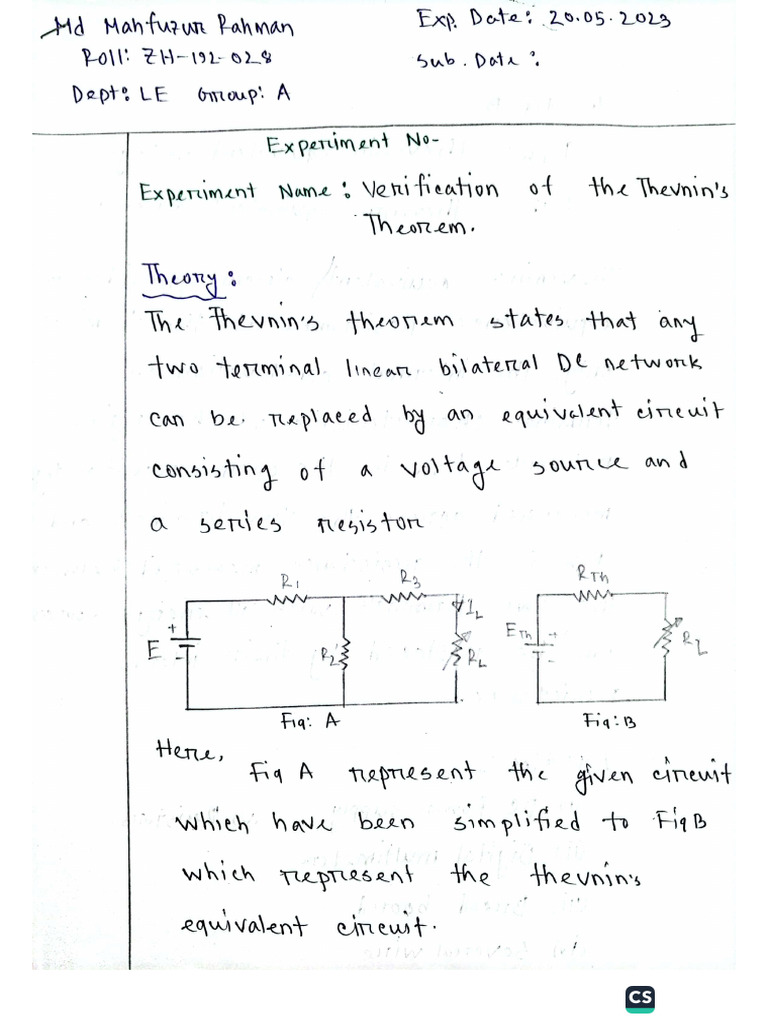 Md Mahfuzur Rahman
Exp. Date: 20.05.2023
Roll: ZH-192-028
Sub. Date:
Dept: LE Group: A
Experiment No-
Experiment Name: Verification of the Thevnin's
Theorem.
Theory:
The Thevnin's theorem states that any
two terminal linear bilateral DC network
can be replaced by an equivalent circuit
consisting of a voltage source and
a series resistor
R1 R3 RTh
+ IL ETh +
E R2 RL RL
- -
Fig: A Fig: B
Here,
Fig A represent the given circuit
which have been simplified to Fig B
which represent the thevnin's
equivalent circuit.
CS